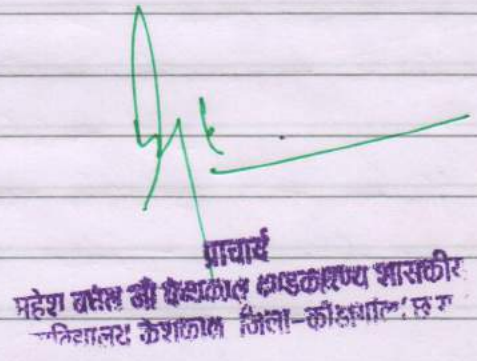 प्राचार्य
महेश बघेल जी केशकाल दण्डकारण्य शासकीय
महाविद्यालय केशकाल जिला-कोंडागांव, छ.ग.